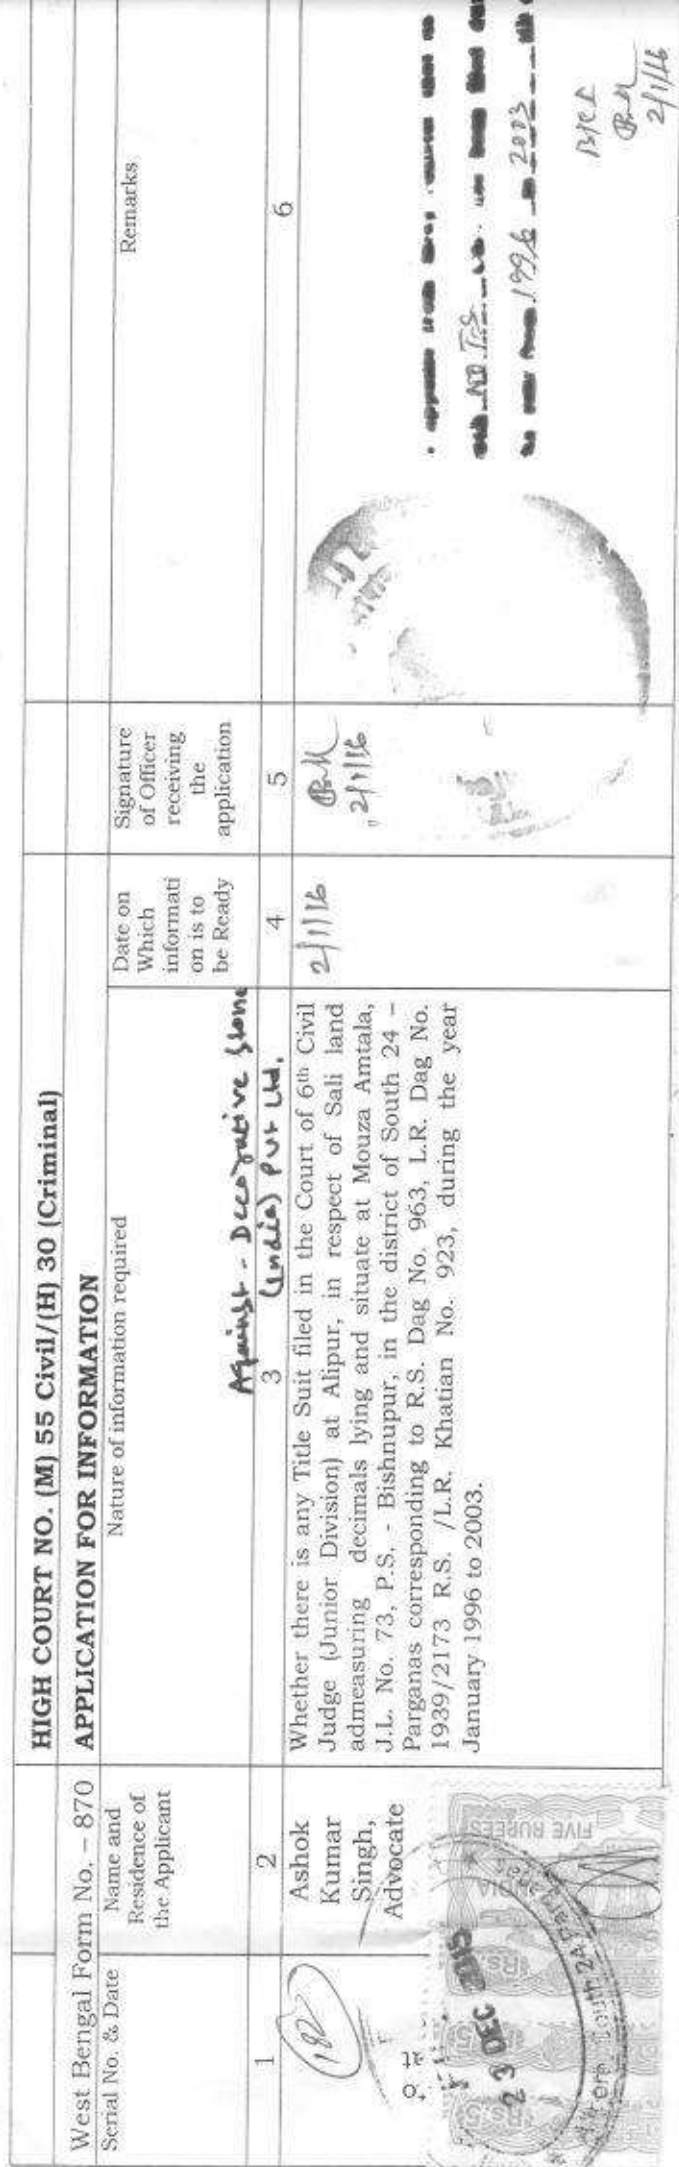 HIGH COURT NO. (M) 55 Civil/(H) 30 (Criminal)
West Bengal Form No. – 870
APPLICATION FOR INFORMATION
Serial No. & Date
Name and
Residence of
the Applicant
Nature of information required
Date on
Which
informati
on is to
be Ready
Signature
of Officer
receiving
the
application
Remarks
Against - Decorative Stone
(India) Pvt Ltd.
1
2
3
4
5
6
182
Ashok
Kumar
Singh,
Advocate
Whether there is any Title Suit filed in the Court of 6th Civil
Judge (Junior Division) at Alipur, in respect of Sali land
admeasuring decimals lying and situate at Mouza Amtala,
J.L. No. 73, P.S. - Bishnupur, in the district of South 24 –
Parganas corresponding to R.S. Dag No. 963, L.R. Dag No.
1939/2173 R.S. /L.R. Khatian No. 923, during the year
January 1996 to 2003.
2/1/16
2/1/16
NO T.S
1996
2003
2/1/16
FIVE RUPEES
INDIA
Rs.5
23 DEC 2015
South 24 Parganas